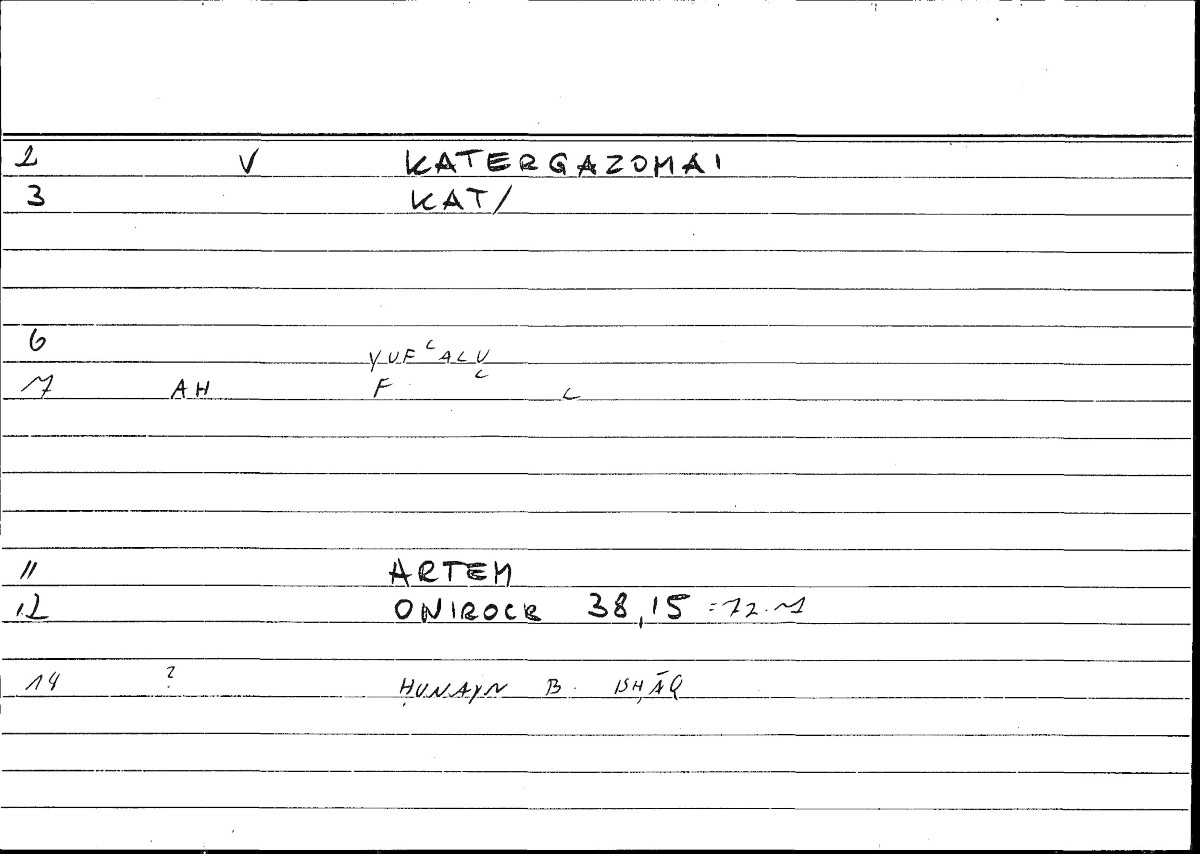 2 V KATERGAZOMAI
3 KAT/
6 YUFʿALU
7 AH Fʿ L
11 ARTEM
12 ONIROCR 38,15 = 72.1
14 ? ḤUNAYN B. ISḤĀQ